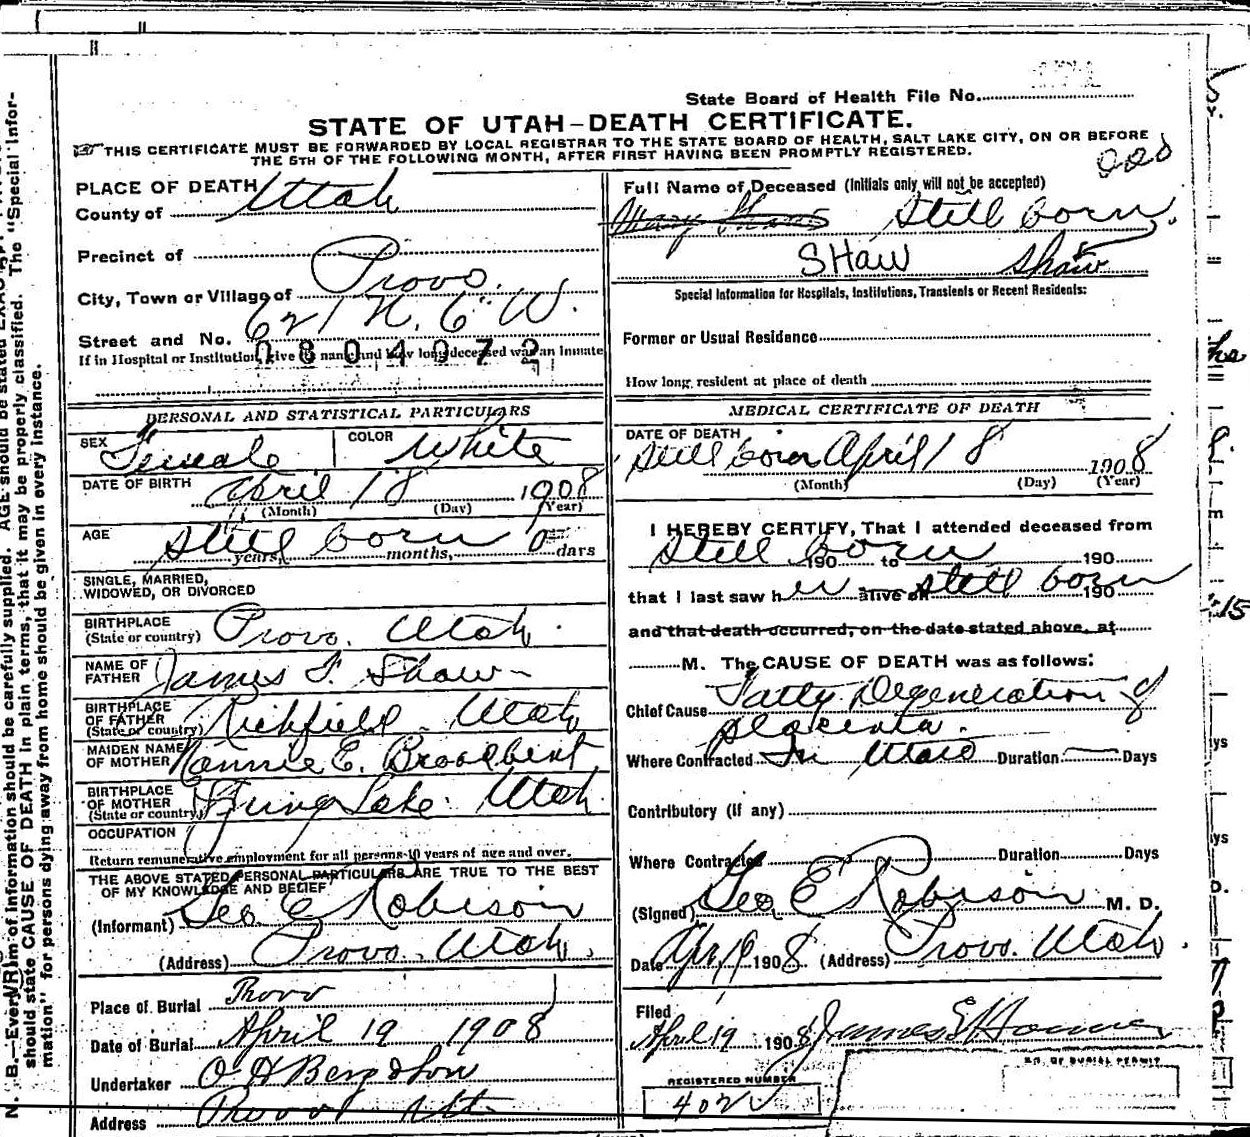 State Board of Health File No.
STATE OF UTAH-DEATH CERTIFICATE.
THIS CERTIFICATE MUST BE FORWARDED BY LOCAL REGISTRAR TO THE STATE BOARD OF HEALTH, SALT LAKE CITY, ON OR BEFORE
THE 5TH OF THE FOLLOWING MONTH, AFTER FIRST HAVING BEEN PROMPTLY REGISTERED.
PLACE OF DEATH
County of Utah
Precinct of
City, Town or Village of Provo.
Street and No. 621 N. 6" W.
If in Hospital or Institution, give its name and how long deceased was an inmate
0804072
PERSONAL AND STATISTICAL PARTICULARS
SEX Female COLOR White
DATE OF BIRTH April 18 1908
(Month) (Day) (Year)
AGE Still born 0
years, months, days
SINGLE, MARRIED,
WIDOWED, OR DIVORCED
BIRTHPLACE
(State or country) Provo. Utah.
NAME OF
FATHER James F. Shaw
BIRTHPLACE
OF FATHER
(State or country) Richfield. Utah
MAIDEN NAME
OF MOTHER Nannie E. Broadbent
BIRTHPLACE
OF MOTHER
(State or country) Spring Lake. Utah
OCCUPATION
Return remunerative employment for all persons 10 years of age and over.
THE ABOVE STATED PERSONAL PARTICULARS ARE TRUE TO THE BEST
OF MY KNOWLEDGE AND BELIEF
(Informant) Geo E Robison
(Address) Provo. Utah.
Place of Burial Provo
Date of Burial April 19 1908
Undertaker O H Berg & Son
Address Provo Ut
Full Name of Deceased (Initials only will not be accepted)
Mary Shaw Still born.
SHAW Shaw
Special Information for Hospitals, Institutions, Transients or Recent Residents:
Former or Usual Residence
How long resident at place of death
MEDICAL CERTIFICATE OF DEATH
DATE OF DEATH
Still born April 18 1908
(Month) (Day) (Year)
I HEREBY CERTIFY, That I attended deceased from
Still born 190 to 190
that I last saw her alive on still born 190
and that death occurred, on the date stated above, at
M. The CAUSE OF DEATH was as follows:
Chief Cause Fatty Degeneration of
placenta.
Where Contracted In Utero Duration Days
Contributory (if any)
Where Contracted Duration Days
(Signed) Geo E Robison M. D.
Date Apr 19 1908 (Address) Provo. Utah.
Filed
April 19 1908
REGISTERED NUMBER
NO. OF BURIAL PERMIT
N. B.—Every item of information should be carefully supplied. AGE should be stated
should state CAUSE OF DEATH in plain terms, that it may be properly classified. The "Special Infor-
mation" for persons dying away from home should be given in every instance.